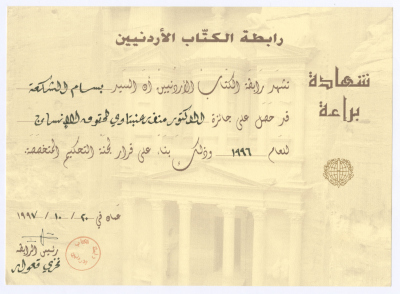 رابطة الكتّاب الأردنيين
شهادة
براءة
تشهد رابطة الكتاب الأردنيين أن السيد بسام الشكعة
قد حصل على جائزة الدكتور منذر عنبتاوي لحقوق الإنسان
للعام ١٩٩٦ وذلك بناء على قرار لجنة التحكيم المتخصصة.
عمان في ٢٠ / ١٠ / ١٩٩٧
رئيس الرابطة
فخري قعوار